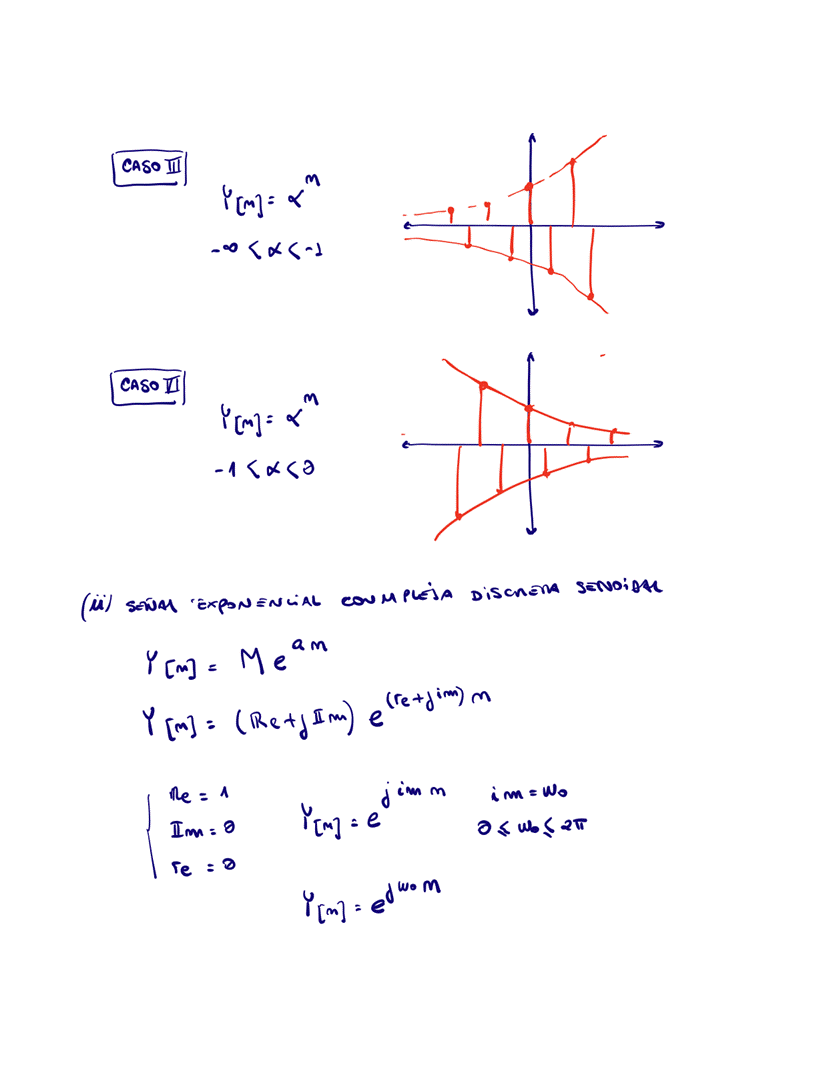 CASO III
Y[n] = α^n
-∞ < α < -1
CASO VI
Y[n] = α^n
-1 < α < 0
(ii) SEÑAL EXPONENCIAL COMPLEJA DISCRETA SENOIDAL
Y[n] = M e^{an}
Y[n] = (Re + j IIm) e^{(re + j im) n}
Re = 1
IIm = 0
re = 0
Y[n] = e^{j im n}
im = ω₀
0 ≤ ω₀ ≤ 2π
Y[n] = e^{jω₀n}